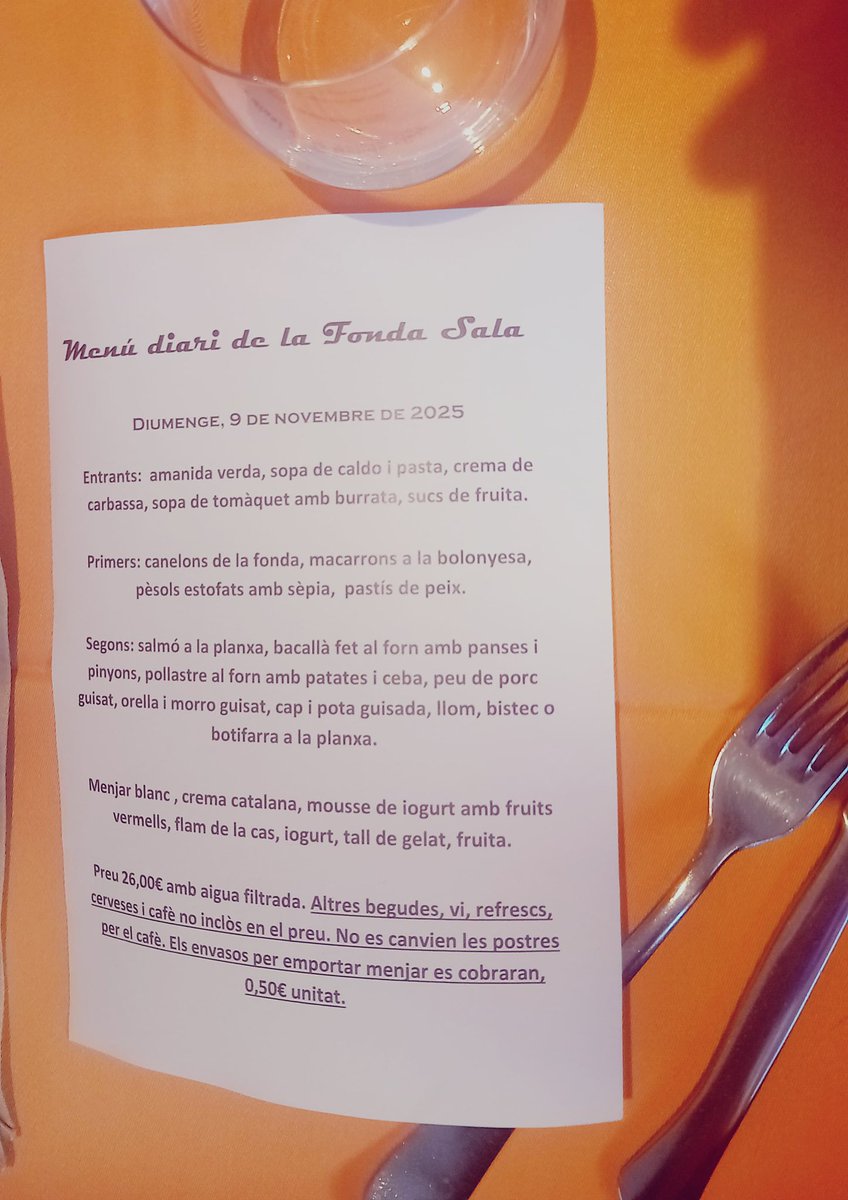 Menú diari de la Fonda Sala
DIUMENGE, 9 DE NOVEMBRE DE 2025
Entrants:  amanida verda, sopa de caldo i pasta, crema de
carbassa, sopa de tomàquet amb burrata, sucs de fruita.
Primers: canelons de la fonda, macarrons a la bolonyesa,
pèsols estofats amb sèpia,  pastís de peix.
Segons: salmó a la planxa, bacallà fet al forn amb panses i
pinyons, pollastre al forn amb patates i ceba, peu de porc
guisat, orella i morro guisat, cap i pota guisada, llom, bistec o
botifarra a la planxa.
Menjar blanc , crema catalana, mousse de iogurt amb fruits
vermells, flam de la cas, iogurt, tall de gelat, fruita.
Preu 26,00€ amb aigua filtrada. Altres begudes, vi, refrescs,
cerveses i cafè no inclòs en el preu. No es canvien les postres
per el cafè. Els envasos per emportar menjar es cobraran,
0,50€ unitat.